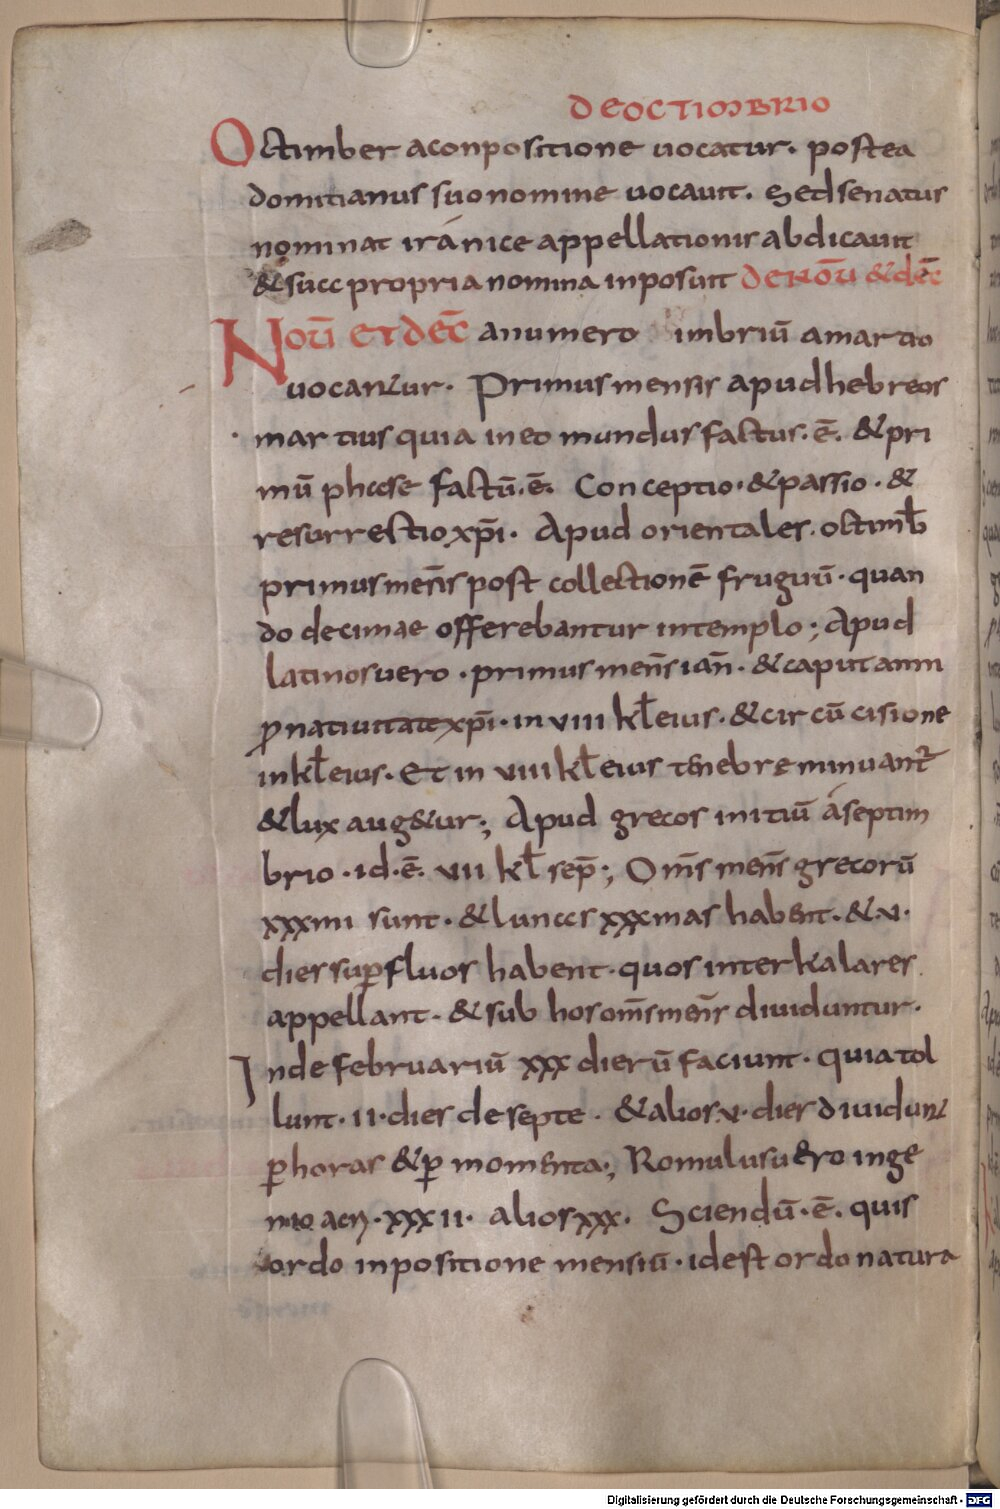 DE OCTIMBRIO
Octimber a conpositione uocatur. postea
domitianus suo nomine uocauit. Sed senatus
nominat iránice appellationis abdicauit
& succ propria nomina inposuit DE NOU̅ & DEC̅
NOU̅ ET DEC̅ a numero imbriu̅ a martio
uocantur. Primus mensis apud hebreos
martius quia in eo mundus factus. e̅. & pri
mu̅ phase factu̅. e̅. Conceptio. & passio. &
resurrectio xp̅i. Apud orientales. octimb̅
primus men̅s post collectione̅ fruguu̅. quan
do decimae offerebantur in templo; Apud
latinos uero. primus men̅s ian̅. & caput anni
ꝓ natiuitate xp̅i. in uiii kl̅ eius. & circu̅cisione
in kl̅ eius. Et in uiii kl̅ eius tenebre minuant᷑
& lux aug&ur; Apud grecos initiu̅ á septim
brio. id. e̅. uii kl̅ sep̅; Om̅s men̅s grecoru̅
xxxmi sunt. & lunas xxxmas habent. & .u.
dies suꝑfluos habent. quos interkalares
appellant. & sub hos om̅s men̅s diuiduntur.
Inde februariu̅ xxx dieru̅ faciunt. quia tol
lunt. ii. dies de septe. & alios .u. dies diuidunt
ꝑ horas & ꝑ momenta; Romulus uero inge
xxxii. alios xxx. Sciendu̅. e̅. quis
ordo inpositione mensiu̅. id est ordo natura
Digitalisierung gefördert durch die Deutsche Forschungsgemeinschaft - DFG